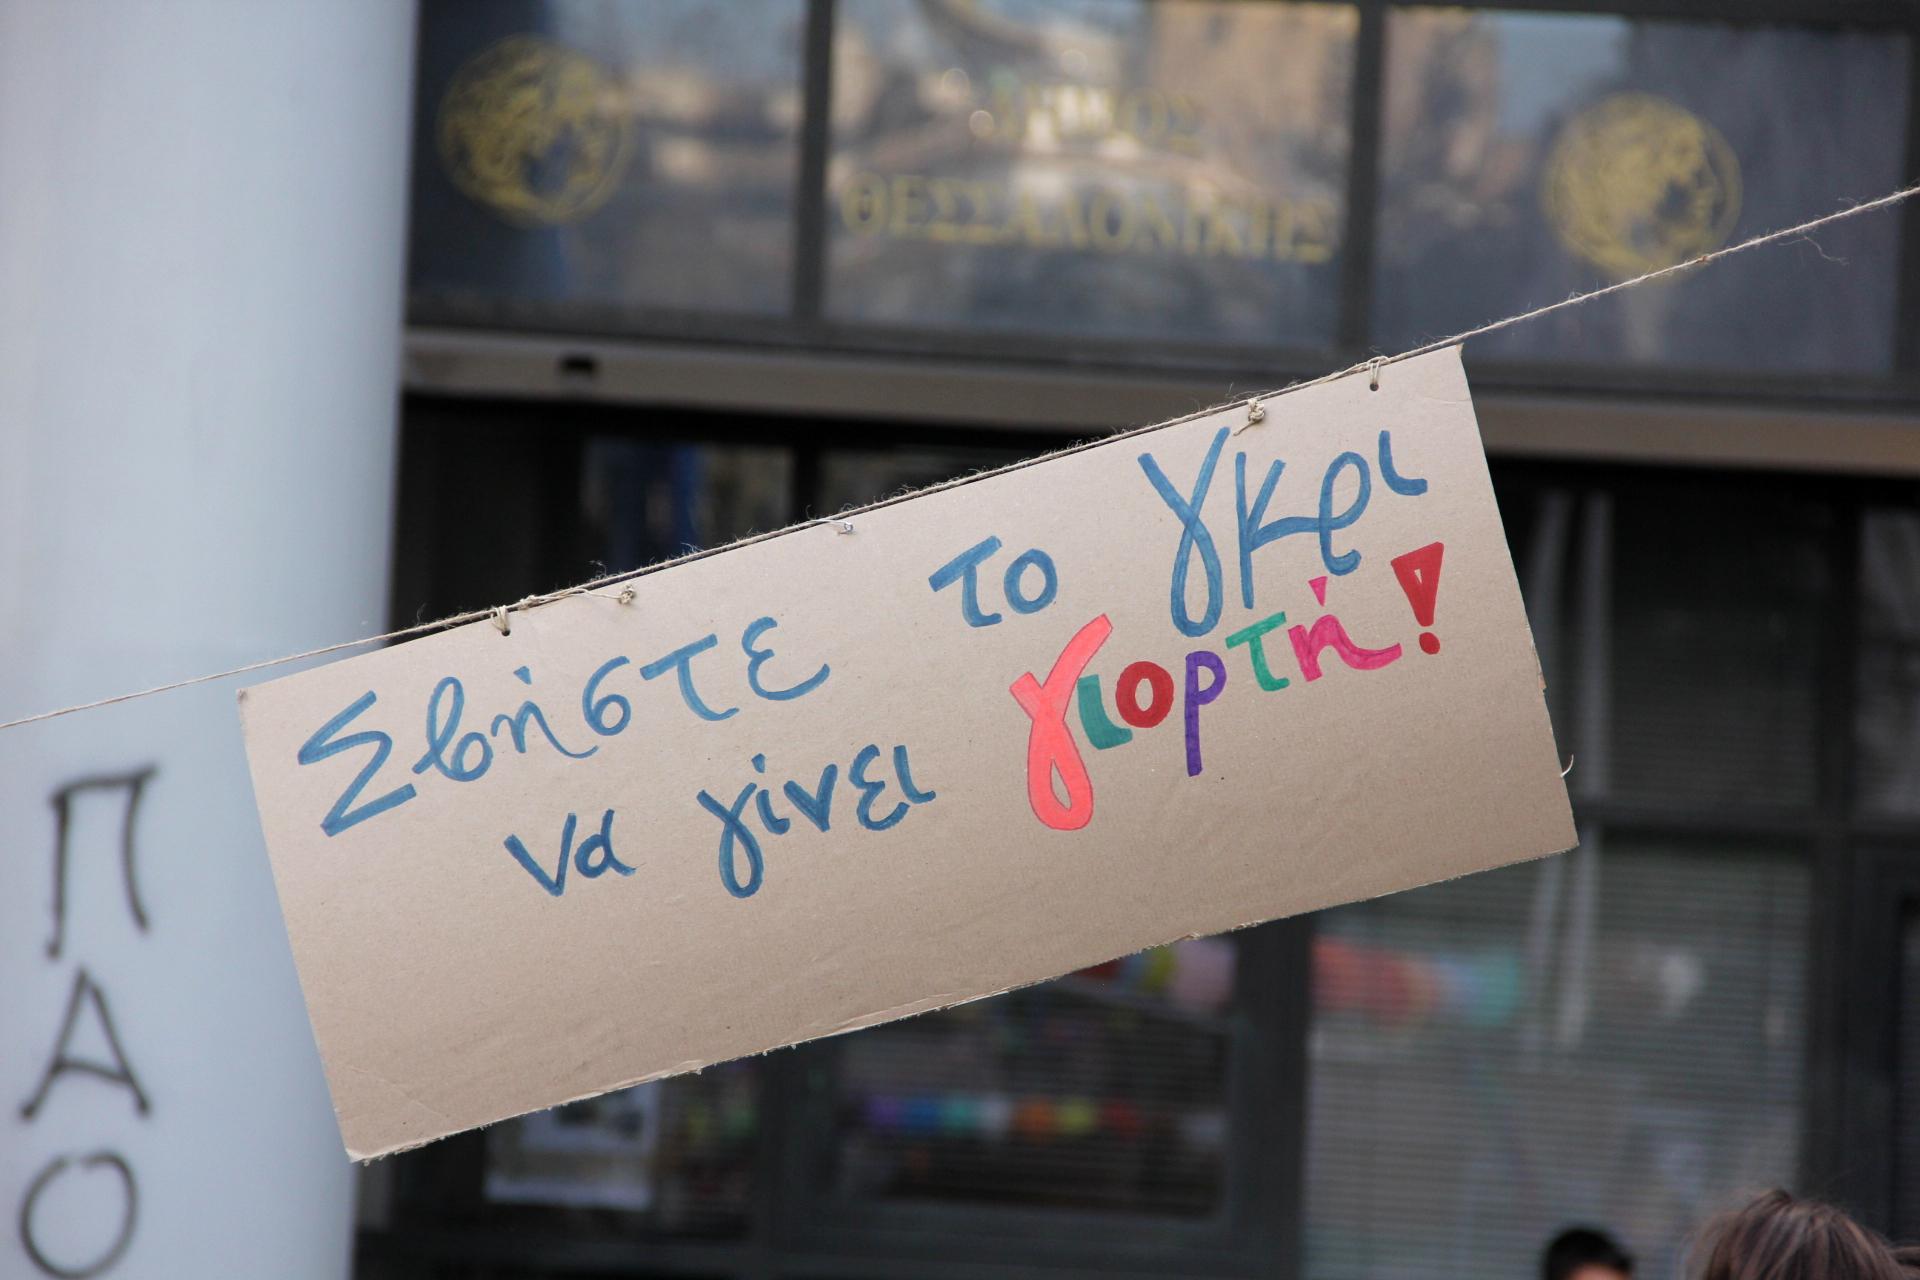 ΔΗΜΟΣ
ΘΕΣΣΑΛΟΝΙΚΗΣ
Σβήστε το γκρι
να γίνει γιορτή!
ΠΑΟ